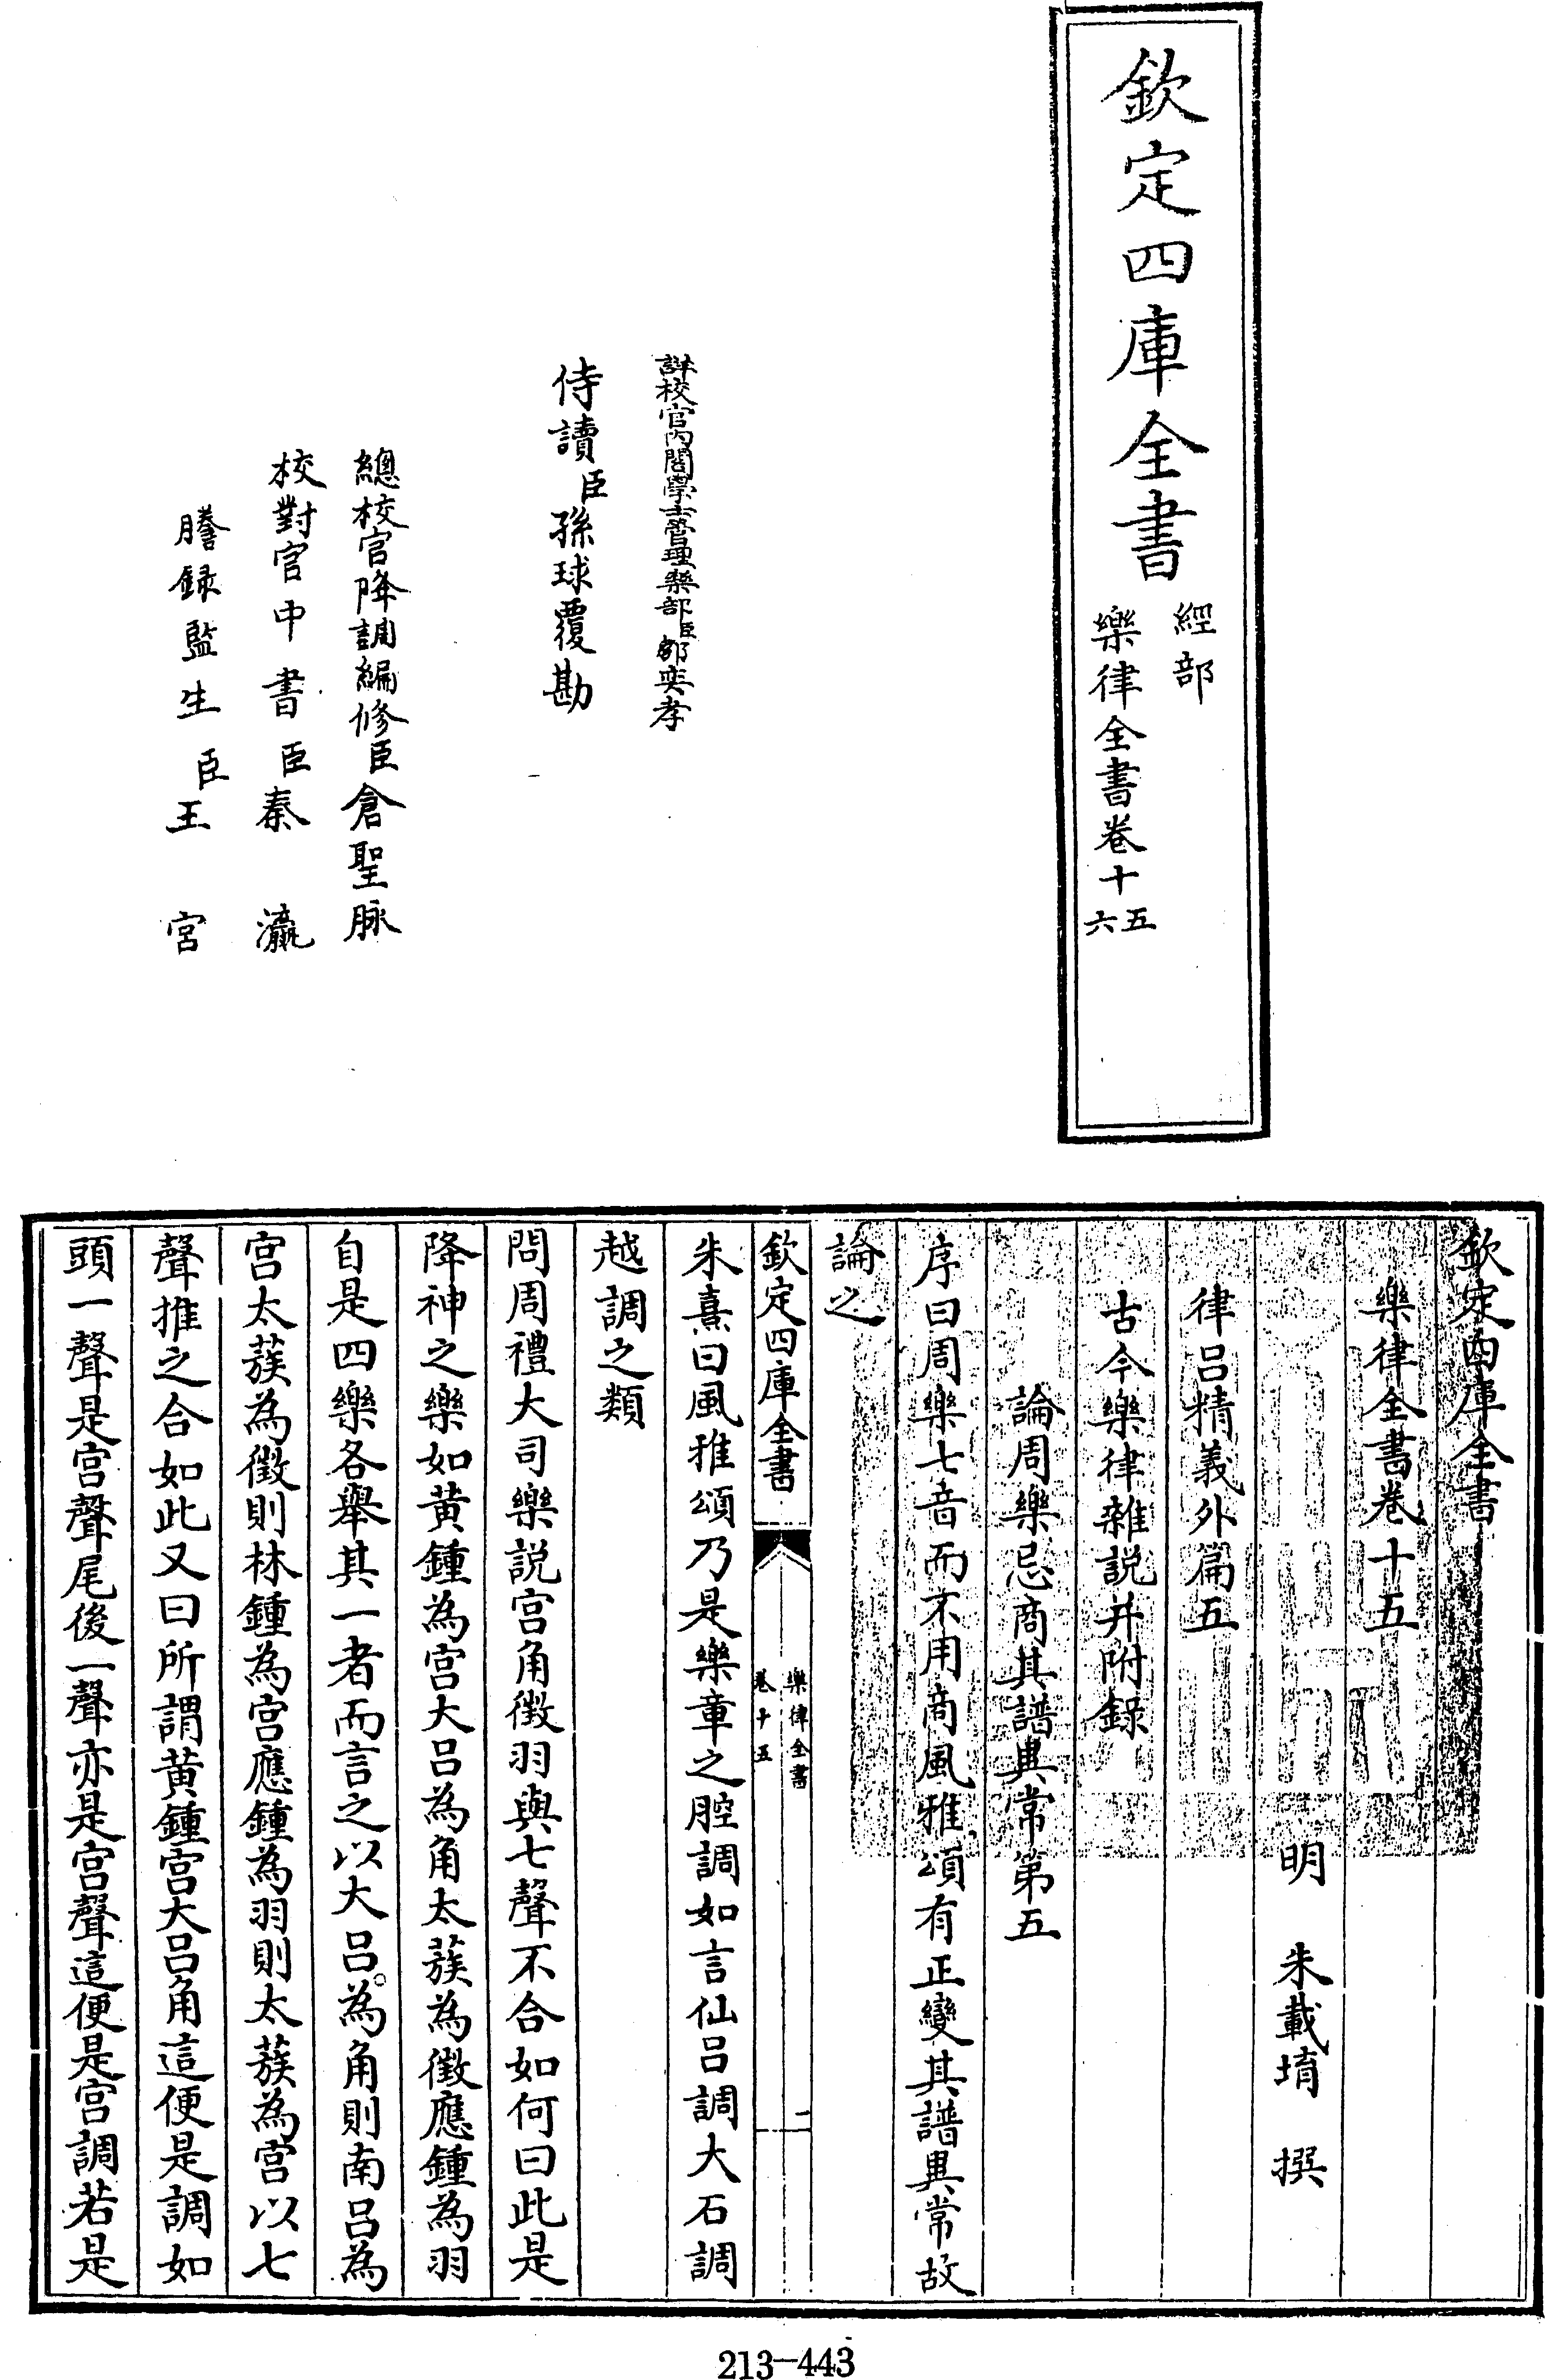 欽定四庫全書
經部
樂律全書卷十五六
詳校官内閣學士管理樂部臣鄒奕孝
侍讀臣孫球覆勘
總校官降調編修臣倉聖脉
校對官中書臣秦瀛
謄録監生臣王宫
欽定四庫全書
樂律全書卷十五
明 朱載堉 撰
律吕精義外篇五
古今樂律雜説并附録
論周樂忌商其譜異常第五
序曰周樂七音而不用商風雅頌有正變其譜異常故
論之
欽定四庫全書
樂律全書
卷十五
一
朱熹曰風雅頌乃是樂章之腔調如言仙吕調大石調
越調之類
問周禮大司樂説宫角徴羽與七聲不合如何曰此是
降神之樂如黄鍾為宫大吕為角太蔟為徴應鍾為羽
自是四樂各舉其一者而言之以大吕為角則南吕為
宫太蔟為徴則林鍾為宫應鍾為羽則太蔟為宫以七
聲推之合如此又曰所謂黄鍾宫大吕角這便是調如
頭一聲是宫聲尾後一聲亦是宫聲這便是宫調若是
213-443